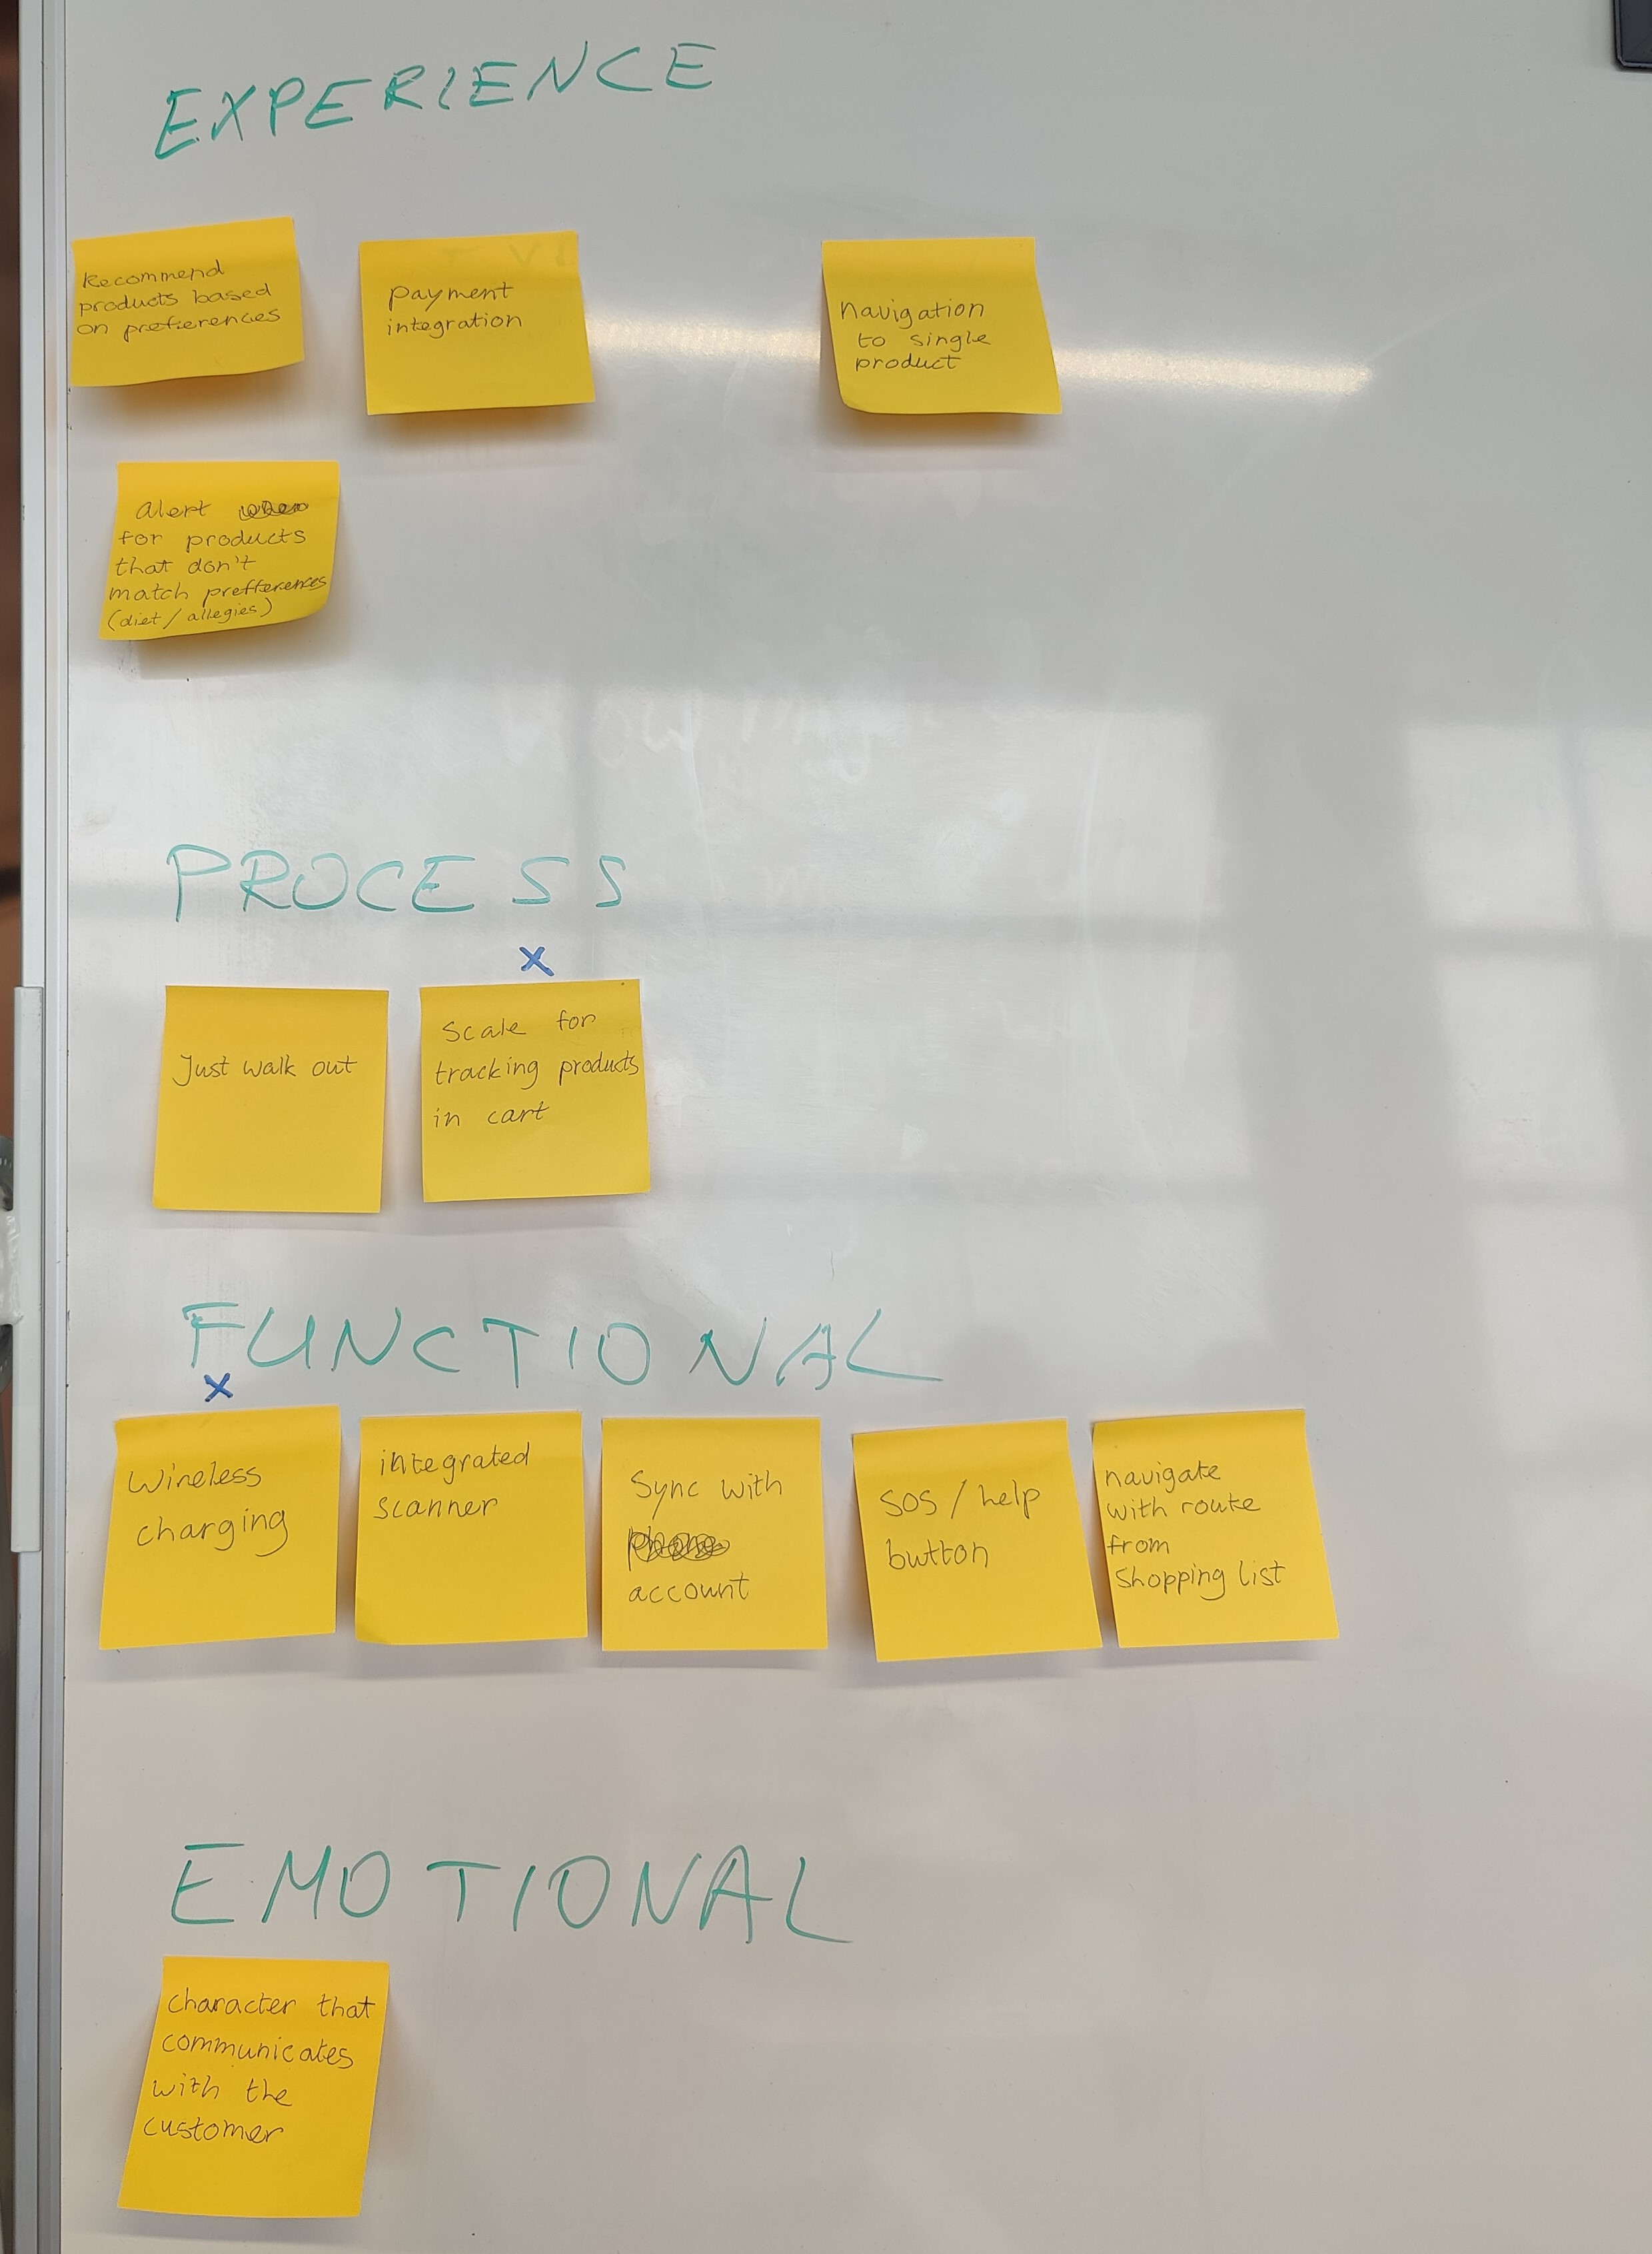 EXPERIENCE
Recommend
products based
on prefierences
payment
integration
navigation
to single
product
alert
for products
that don't
match prefferences
(diet / allegies)
PROCESS
X
Just walk out
Scale for
tracking products
in cart
FUNCTIONAL
X
Wireless
charging
integrated
scanner
Sync with
account
SOS / help
button
navigate
with route
from
shopping list
EMOTIONAL
character that
communicates
with the
customer